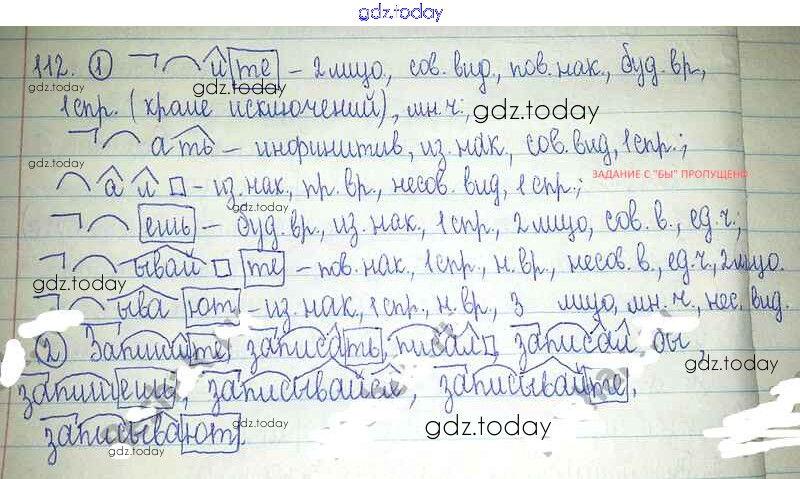 gdz.today
112. ① и те – 2 лицо, сов. вид, пов. нак., буд. вр.,
gdz.today
1 спр. (кроме исключений), мн. ч.; gdz.today
ать – инфинитив, из. нак., сов. вид, 1 спр.;
gdz.today
ЗАДАНИЕ С "БЫ" ПРОПУЩЕНО
а л – из. нак., пр. вр., несов. вид, 1 спр.;
gdz.today
ешь – буд. вр., из. нак., 1 спр., 2 лицо, сов. в., ед. ч.;
ывай те – пов. нак., 1 спр., н. вр., несов. в., ед. ч., 2 лицо.
gdz.today
ыва ют – из. нак., 1 спр., н. вр., 3 лицо, мн. ч., нес. вид.
② Запишите, записать, писал, записал бы,
gdz.today
gdz.today
запишешь, записывайся, записывайте,
gdz.today
записывают.
gdz.today
gdz.today